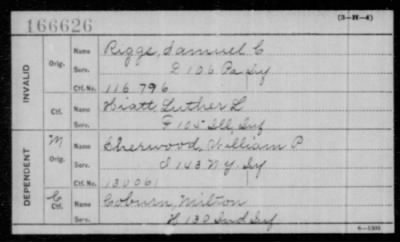 166626
(3-H-4)
INVALID
Orig.
Name Riggs, Samuel C
Serv. D 106 Pa Inf
Ctf. No. 116 796
Ctf.
Name Hiatt Luther L
Serv. F 105 Ill, Inf
DEPENDENT
M Orig.
Name Sherwood, William P
Serv. I 143 N.Y. Inf
Ctf. No. 130061
C Ctf.
Name Coburn, Milton
Serv. H 130 Ind Inf